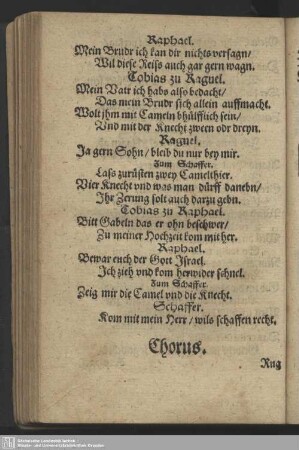 Raphael.
Mein Brudr ich kan dir nichts versagn/
Wil diese Reiss auch gar gern wagn.
Tobias zu Raguel.
Mein Vatr ich habs also bedacht/
Das mein Brudr sich allein auffmacht.
Wolt jhm mit Cameln bhülfflich sein/
Vnd mit der Knecht zween odr dreyn.
Raguel,
Ja gern Sohn/ bleib du nur bey mir.
Zum Schaffer.
Lass zurüsten zwey Camelthier.
Vier Knecht vnd was man dürff danebn/
Ihr Zerung solt auch darzu gebn.
Tobias zu Raphael.
Bitt Gabeln das er ohn beschwer/
Zu meiner Hochzeit kom mit her.
Raphael.
Bewar euch der Gott Israel.
Ich zieh vnd kom herwider schnel.
Zum Schaffer.
Zeig mir die Camel vnd die Knecht.
Schaffer.
Kom mit mein Herr/ wils schaffen recht.
Chorus.
Rag